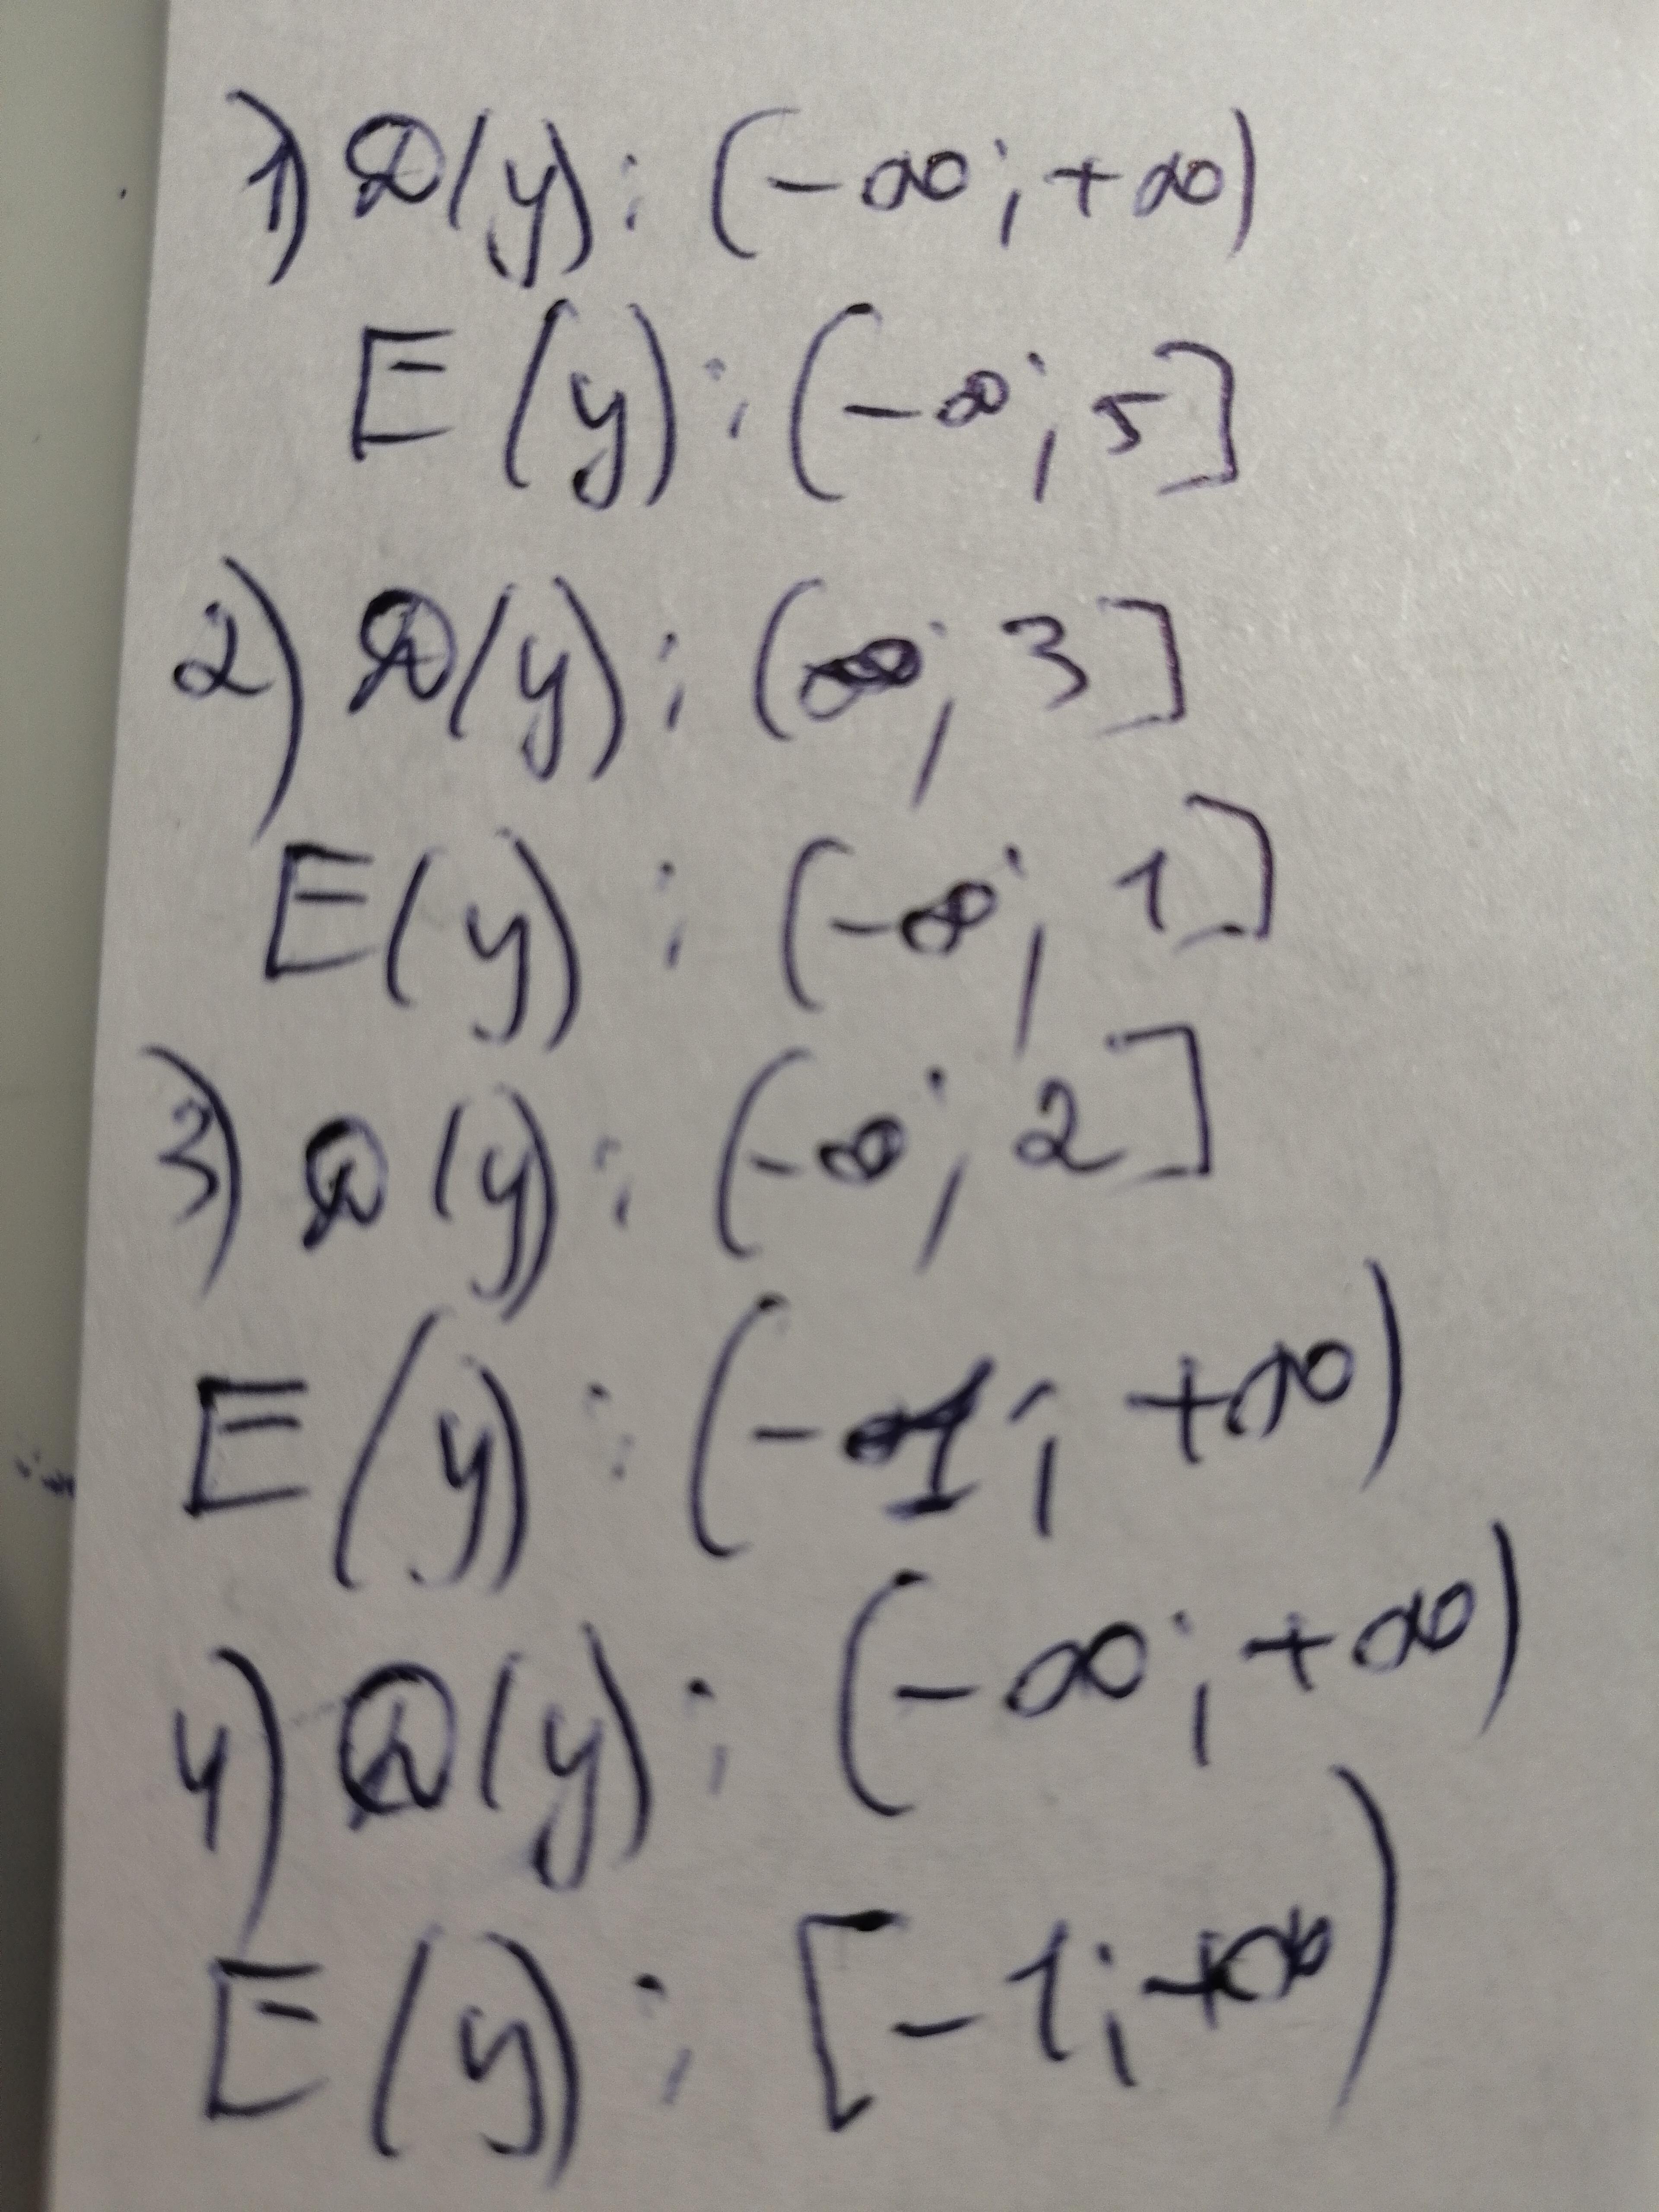 1) D(y): (-∞; +∞)
E(y): (-∞; 5]
2) D(y): (∞; 3]
E(y): (-∞; 1]
3) D(y): (-∞; 2]
E(y): (-1; +∞)
4) D(y): (-∞; +∞)
E(y): [-1; +∞)